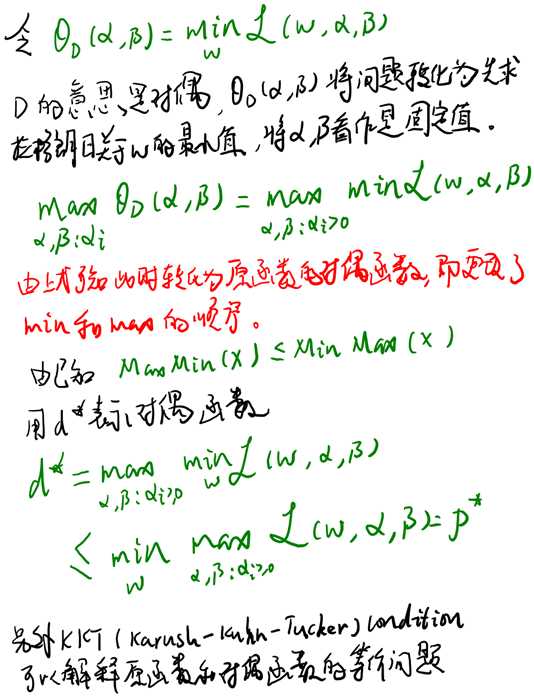 令 θ_D(α,β) = min_w L(w,α,β)
D的意思是对偶,θ_D(α,β)将问题转化为先求
拉格朗日关于w的最小值,将α,β看作是固定值。
max_{α,β:αi} θ_D(α,β) = max_{α,β:αi>0} min L(w,α,β)
由上式知此时转化为原函数的对偶函数,即更改了
min和max的顺序。
由已知 MaxMin(X) ≤ Min Max(X)
用d*表示对偶函数
d* = max_{α,β:αi≥0} min_w L(w,α,β)
≤ min_w max_{α,β:αi≥0} L(w,α,β) = p*
另外KKT(Karush-Kuhn-Tucker)condition
可以解释原函数和对偶函数的等价问题